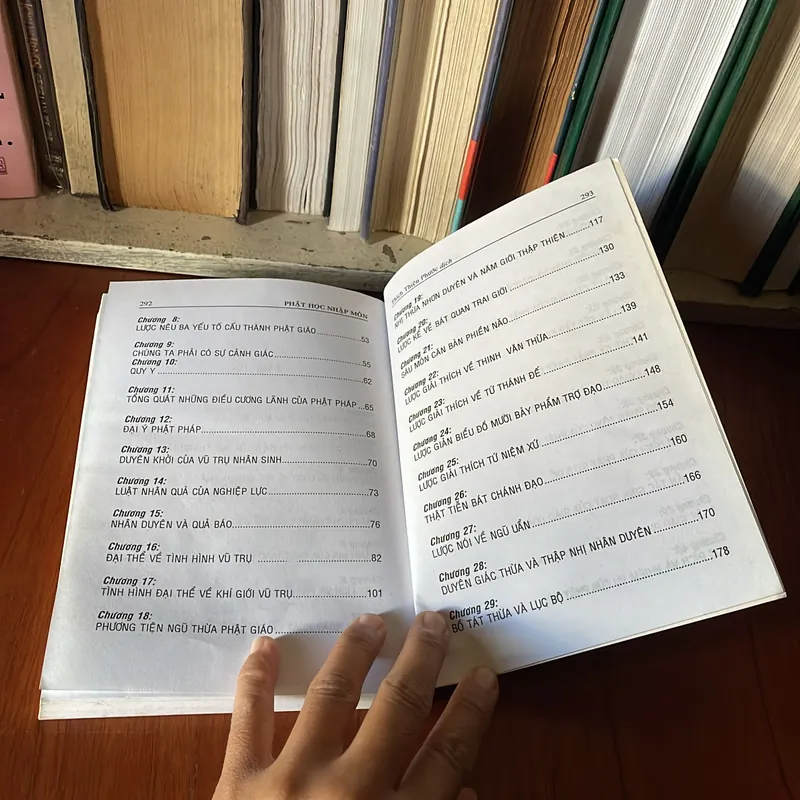 292 PHẬT HỌC NHẬP MÔN
Chương 8:
LƯỢC NÊU BA YẾU TỐ CẤU THÀNH PHẬT GIÁO..............53
Chương 9:
CHÚNG TA PHẢI CÓ SỰ CẢNH GIÁC..............55
Chương 10:
QUY Y..............62
Chương 11:
TỔNG QUÁT NHỮNG ĐIỀU CƯƠNG LÃNH CỦA PHẬT PHÁP...65
Chương 12:
ĐẠI Ý PHẬT PHÁP..............68
Chương 13:
DUYÊN KHỞI CỦA VŨ TRỤ NHÂN SINH..............70
Chương 14:
LUẬT NHÂN QUẢ CỦA NGHIỆP LỰC..............73
Chương 15:
NHÂN DUYÊN VÀ QUẢ BÁO..............76
Chương 16:
ĐẠI THỂ VỀ TÌNH HÌNH VŨ TRỤ ..............82
Chương 17:
TÌNH HÌNH ĐẠI THỂ VỀ KHÍ GIỚI VŨ TRỤ..............101
Chương 18:
PHƯƠNG TIỆN NGŨ THỪA PHẬT GIÁO..............
Thích Thiện Phước dịch 293
Chương 19:
NHỊ THỪA NHƠN DUYÊN VÀ NĂM GIỚI THẬP THIỆN.........117
Chương 20:
LƯỢC KỂ VỀ BÁT QUAN TRAI GIỚI..............130
Chương 21:
SÁU MÓN CĂN BẢN PHIỀN NÃO..............133
Chương 22:
LƯỢC GIẢI THÍCH VỀ THINH VĂN THỪA..............139
Chương 23:
LƯỢC GIẢI THÍCH VỀ TỨ THÁNH ĐẾ..............141
Chương 24:
LƯỢC GIẢN BIỂU ĐỒ MƯỜI BẢY PHẨM TRỢ ĐẠO..........148
Chương 25:
LƯỢC GIẢI THÍCH TỨ NIỆM XỨ..............154
Chương 26:
THẬT TIỄN BÁT CHÁNH ĐẠO..............160
Chương 27:
LƯỢC NÓI VỀ NGŨ UẨN..............166
Chương 28:
DUYÊN GIÁC THỪA VÀ THẬP NHỊ NHÂN DUYÊN..........170
Chương 29:
BỒ TÁT THỪA VÀ LỤC ĐỘ..............178